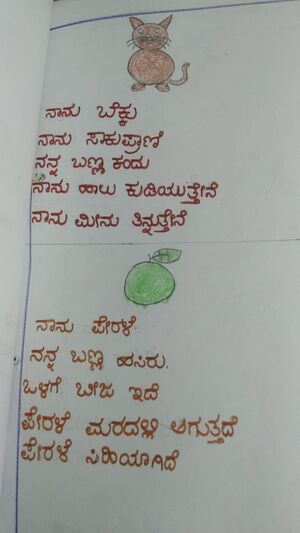 ನಾನು ಬೆಕ್ಕು
ನಾನು ಸಾಕುಪ್ರಾಣಿ
ನನ್ನ ಬಣ್ಣ ಕಂದು
ನಾನು ಹಾಲು ಕುಡಿಯುತ್ತೇನೆ
ನಾನು ಮೀನು ತಿನ್ನುತ್ತೇನೆ
ನಾನು ಪೇರಳೆ
ನನ್ನ ಬಣ್ಣ ಹಸಿರು.
ಒಳಗೆ ಬೀಜ ಇದೆ
ಪೇರಳೆ ಮರದಲ್ಲಿ ಆಗುತ್ತದೆ
ಪೇರಳೆ ಸಿಹಿಯಾಗಿದೆ